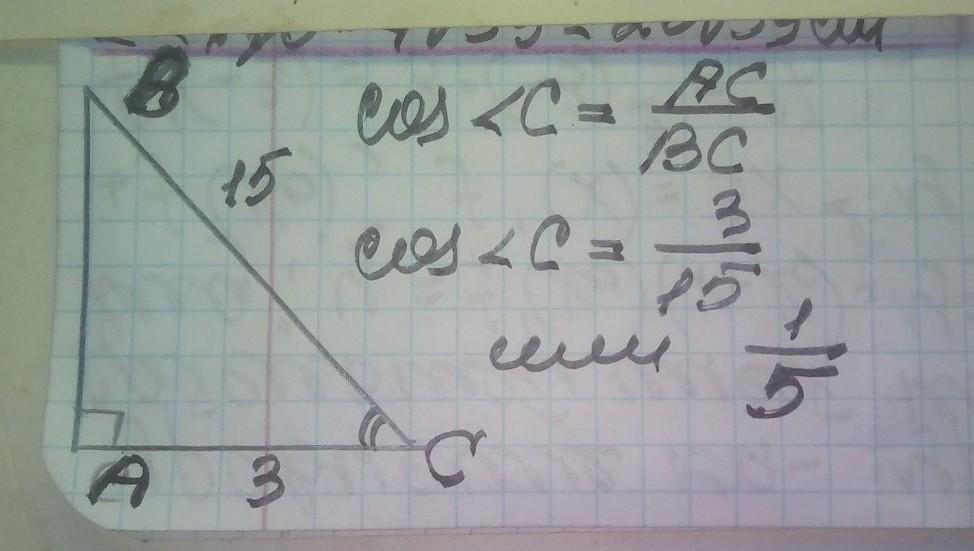 B
15
A
3
C
cos <C = AC/BC
cos <C = 3/15
или 1/5